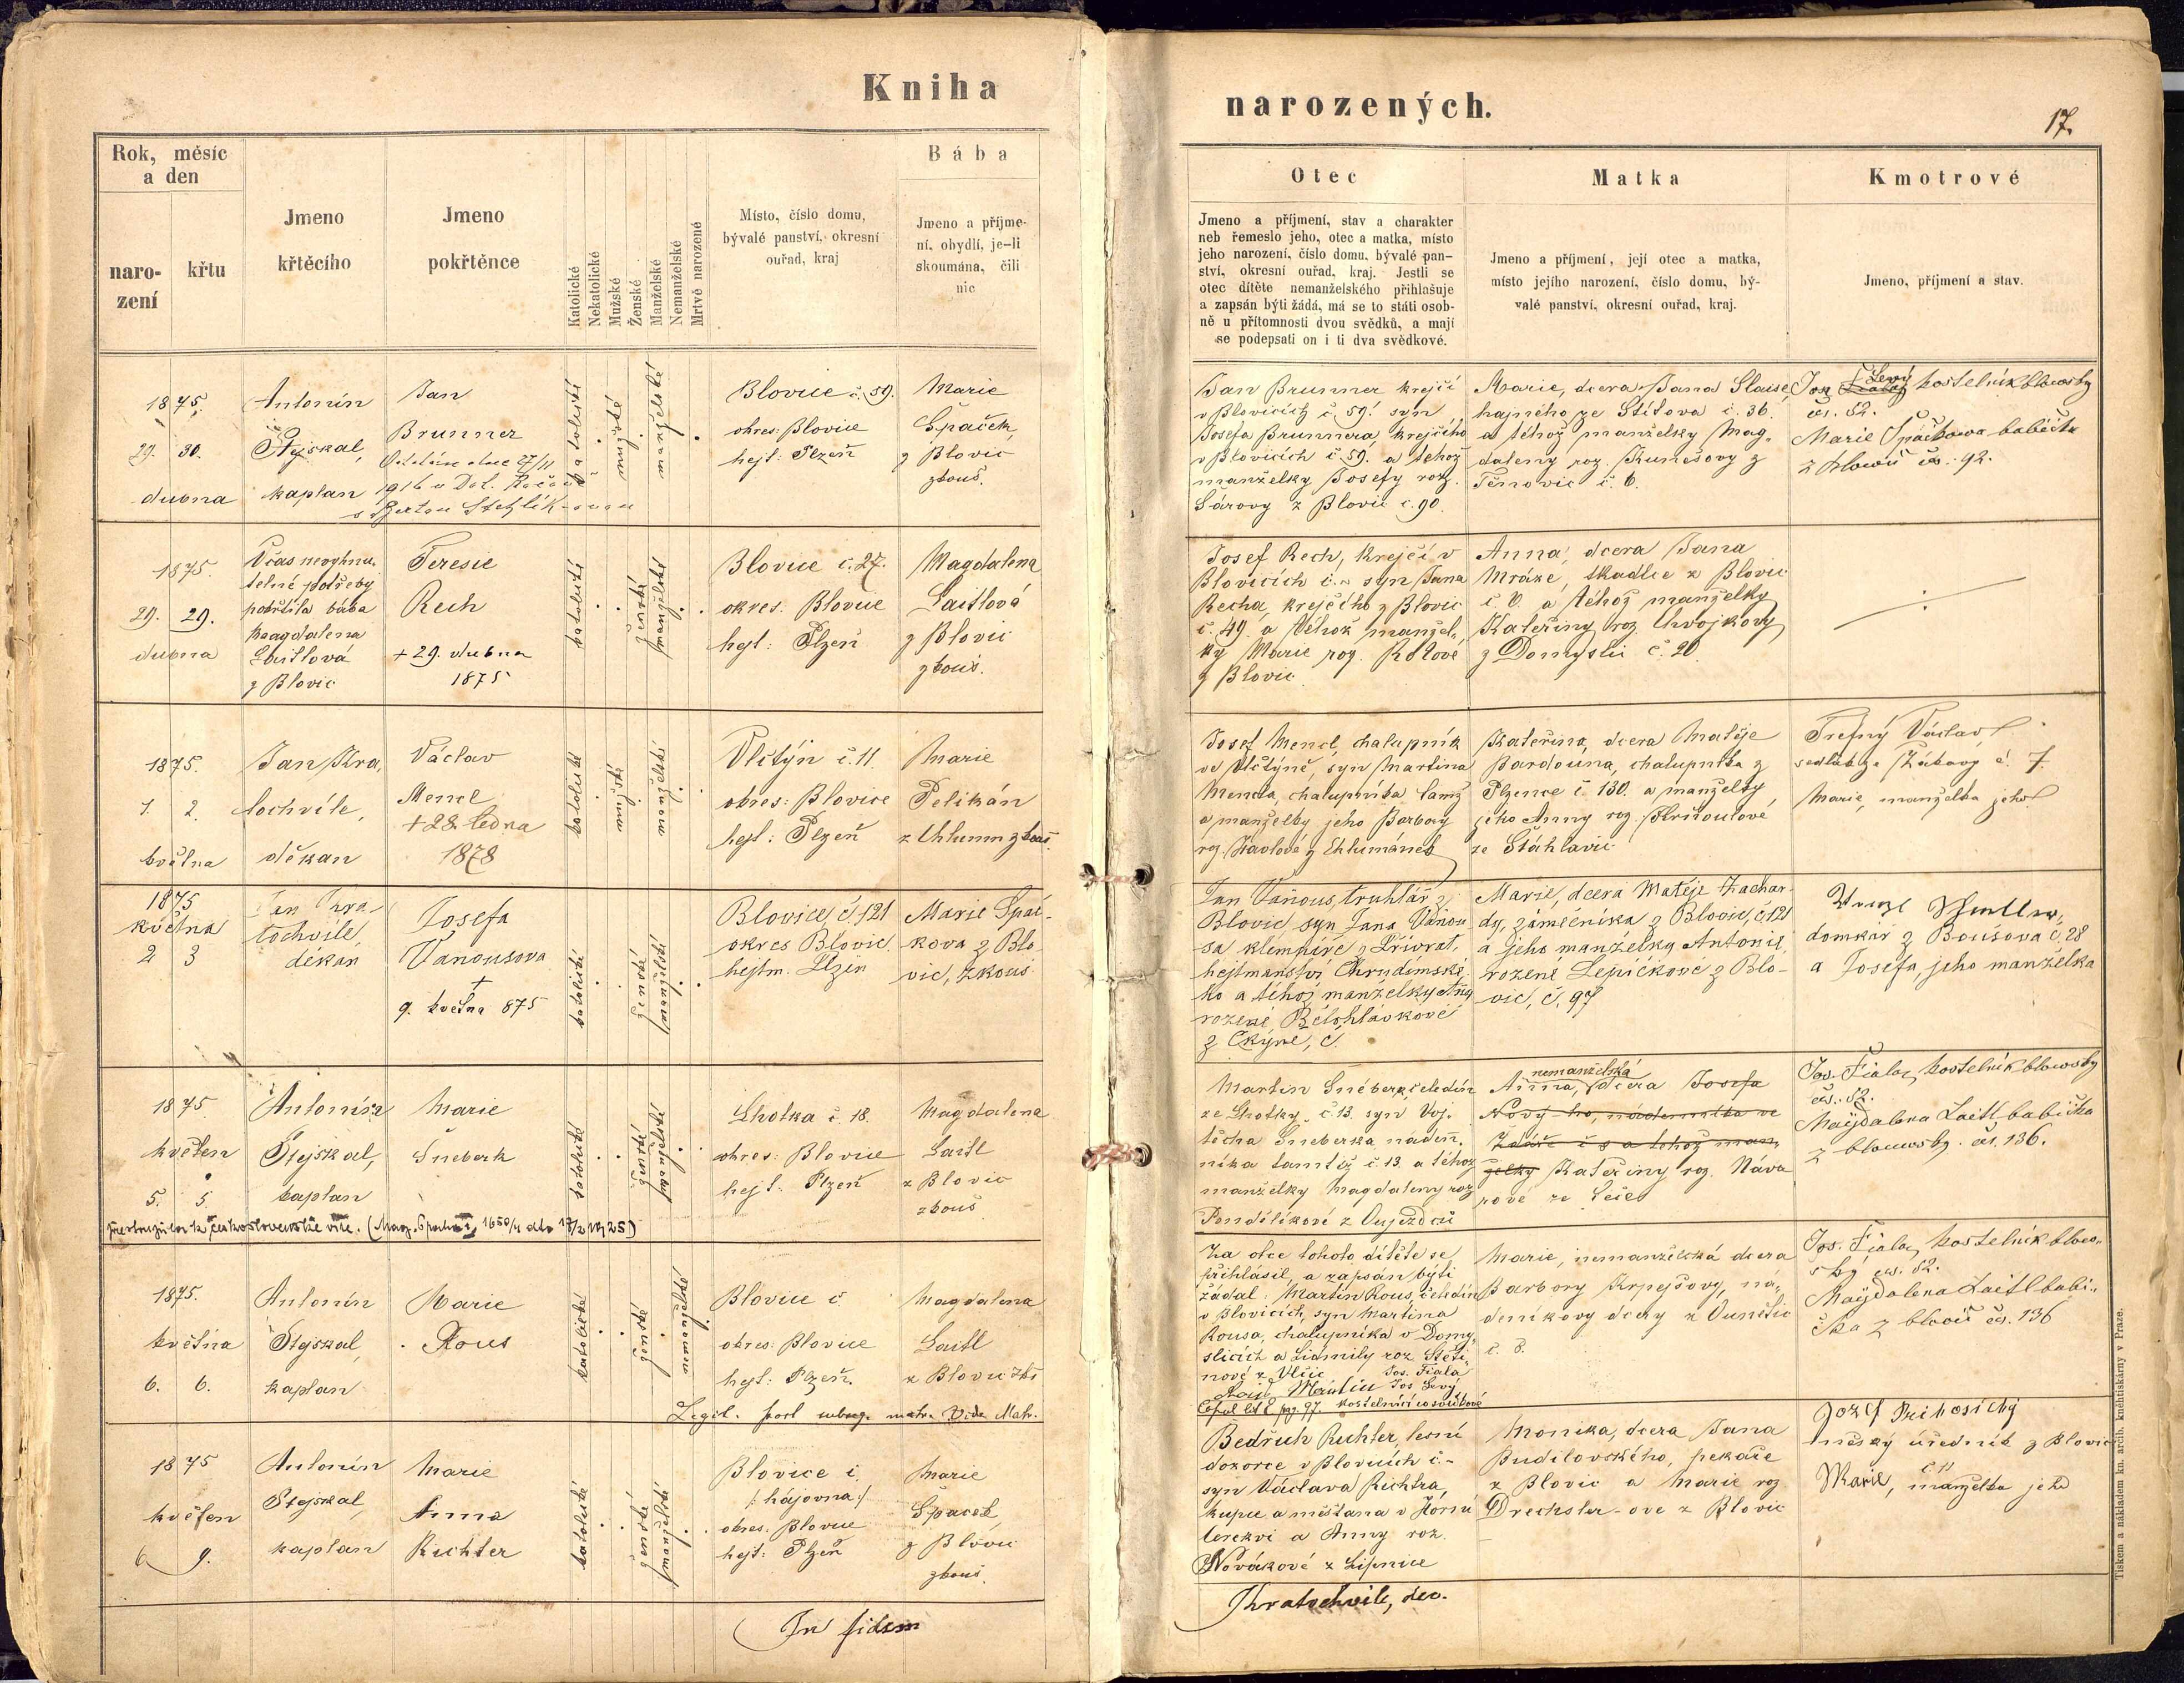 Kniha
narozených.
17.
Rok, měsíc
a den
naro-
zení
křtu
Jmeno
křtěcího
Jmeno
pokřtěnce
Katolické
Nekatolické
Mužské
Ženské
Manželské
Nemanželské
Mrtvě narozené
Místo, číslo domu,
bývalé panství, okresní
ouřad, kraj
Bába
Jmeno a příjme-
ní, obydlí, je-li
skoumána, čili
nic
Otec
Jmeno a příjmení, stav a charakter
neb řemeslo jeho, otec a matka, místo
jeho narození, číslo domu, bývalé pan-
ství, okresní ouřad, kraj. Jestli se
otec dítěte nemanželského přihlašuje
a zapsán býti žádá, má se to státi osob-
ně u přítomnosti dvou svědků, a mají
se podepsati on i ti dva svědkové.
Matka
Jmeno a příjmení, její otec a matka,
místo jejího narození, číslo domu, bý-
valé panství, okresní ouřad, kraj.
Kmotrové
Jmeno, příjmení a stav.
1875.
29. 30.
dubna
Antonín
Stejskal,
kaplan
Jan
Brunner
katolické
mužské
manželské
Blovice č. 59.
okres: Blovice
hejt: Plzeň
Marie
Špaček,
z Blovic
zkouš.
Jan Brunner krejčí
v Blovicích č. 59. syn
Josefa Brunnera, krejčího
v Blovicích č. 59. a téhož
manželky Josefy roz.
Sárovy z Blovic č. 90.
Marie, dcera Jana
hajného ze Štítova č. 36.
a téhož manželky Mag-
daleny roz. Kunešovy z
č. 6.
Jos. Levý kostelník blowsky
čs. 82.
Marie Špačkowa babička
z blowic čs. 92.
1875.
29. 29.
dubna
Včas nevyhnu-
telné potřeby
pokřtila bába
Magdalena
Laitlová
z Blovic
Teresie
Rech
+ 29. dubna
1875
katolické
ženské
manželské
Blovice č. 27.
okres. Blovice
hejt: Plzeň
Magdalena
Laitlová
z Blovic
zkouš.
Josef Rech, krejčí v
Blovicích č. syn Jana
Recha, krejčího z Blovic
č. 49. a téhož manžel-
ky Marie roz.
z Blovic
Anna, dcera Jana
Mráze, tkadlce z Blovic
č. 6. a téhož manželky
Kateřiny roz. Chvojkovy
z Domyslic č. 20.
1875.
1. 2.
května
Jan Kra-
tochvíle,
děkan
Václav
Mencl
+ 28. ledna
1878
katolické
mužské
manželské
Vlčtýn č. 11.
okres: Blovice
hejt: Plzeň
Marie
Pelikán
z Chlumu zkouš.
Josef Mencl, chalupník
ve Vlčtýně, syn Martina
Mencla, chalupníka tamž
a manželky jeho Barbory
roz. Havlové z Chlumánek
Kateřina, dcera Matěje
Bardouna, chalupníka z
Plzence č. 130. a manželky
jeho Anny roz. Křišťoulové
ze Šťáhlavic
Trefný Václav
sedlák ze Žákavy č. 7.
Marie, manželka jeho
1875
května
2 3
Jan Kra-
tochvíle,
děkan
Josefa
Vaňousova
+
9. května 875
katolické
ženské
manželské
Blovice, č. 121
okres Blovic.
hejtm. Plzen
Marie Špač-
kova z Blo-
vic, zkouš
Jan Vaňous, truhlář z
Blovic, syn Jana Vaňou
sa klempíře z Přívrat,
hejtmanství Chrudimské-
ho a téhož manželky Anny
rozené Bělohlávkové
z Čkyně, č.
Marie, dcera Matěje Zachar-
dy, zámečníka z Blovic, č. 121
a jeho manželky Antonie,
rozené Lepičkové z Blo-
vic, č. 97
domkář z Boušova č. 28
a Josefa, jeho manželka
1875
květen
5. 5.
Antonín
Stejskal,
kaplan
Marie
Sneberk
katolické
ženské
manželské
Lhotka č. 18.
okres: Blovice
hejt: Plzeň
Magdalena
Laitl
z Blovic
zkouš
Martin Sneberk, čeledín
ze Lhotky č. 13. syn Voj-
těcha Sneberka náden-
níka tamtéž č. 13. a téhož
manželky Magdaleny roz
Pondělíkové z Oujezda
nemanželská
Anna, dcera Josefa
Kateřiny roz. Náva
rové ze Seče
Jos. Fiala, kostelník blowsky
čs. 82.
Magdalena Laitl babička
z blowsky. čs. 136.
1875.
května
6. 6.
Antonín
Stejskal,
kaplan
Marie
Rous
katolické
ženské
nemanželské
Blovice č
okres: Blovice
hejt: Plzeň.
Magdalena
Laitl
z Blovic zk
Legit. post subseq. matr. Vide Matr.
Za otce tohoto dítěte se
přihlásil, a zapsán býti
žádal: Martin Rous, čeledín
v Blovicích, syn Martina
Rousa, chalupníka v Domy-
slicích a Lidmily roz
nové z Vlčic
Jos. Fiala
Martin Jos Levý
pag. 97. kostelníci co svědkové
Marie, nemanželská dcera
Barbory Krpejšovy, ná-
denikovy dcery z Ouněšic
č. 8.
Jos. Fiala, kostelník blow-
sky čs. 82.
Magdalena Laitl babi-
čka z blowic čs. 136
1875
květen
6 9.
Antonín
Stejskal,
kaplan
Marie
Anna
Richter
katolické
ženské
manželské
Blovice č.
/: hájovna :/
okres. Blovice
hejt: Plzeň
Marie
Špaček
z Blovic
zkouš.
Bedřich Richter, lesní
dozorce v Blovicích č.-
syn Václava Richtra,
kupce a měšťana v Horní
Cerekvi a Anny roz.
Novákové z Lipnice
Monika, dcera Jana
Budilovského, pekaře
z Blovic a Marie roz
Drechsler-ove z Blovic
Jozef Prihosichý
městský úředník z Blovic
č 11
Marie, manželka jeho
In fidem
Kratochvile, děk.
Tiskem a nákladem kn. arcib. kněhtiskárny v Praze.